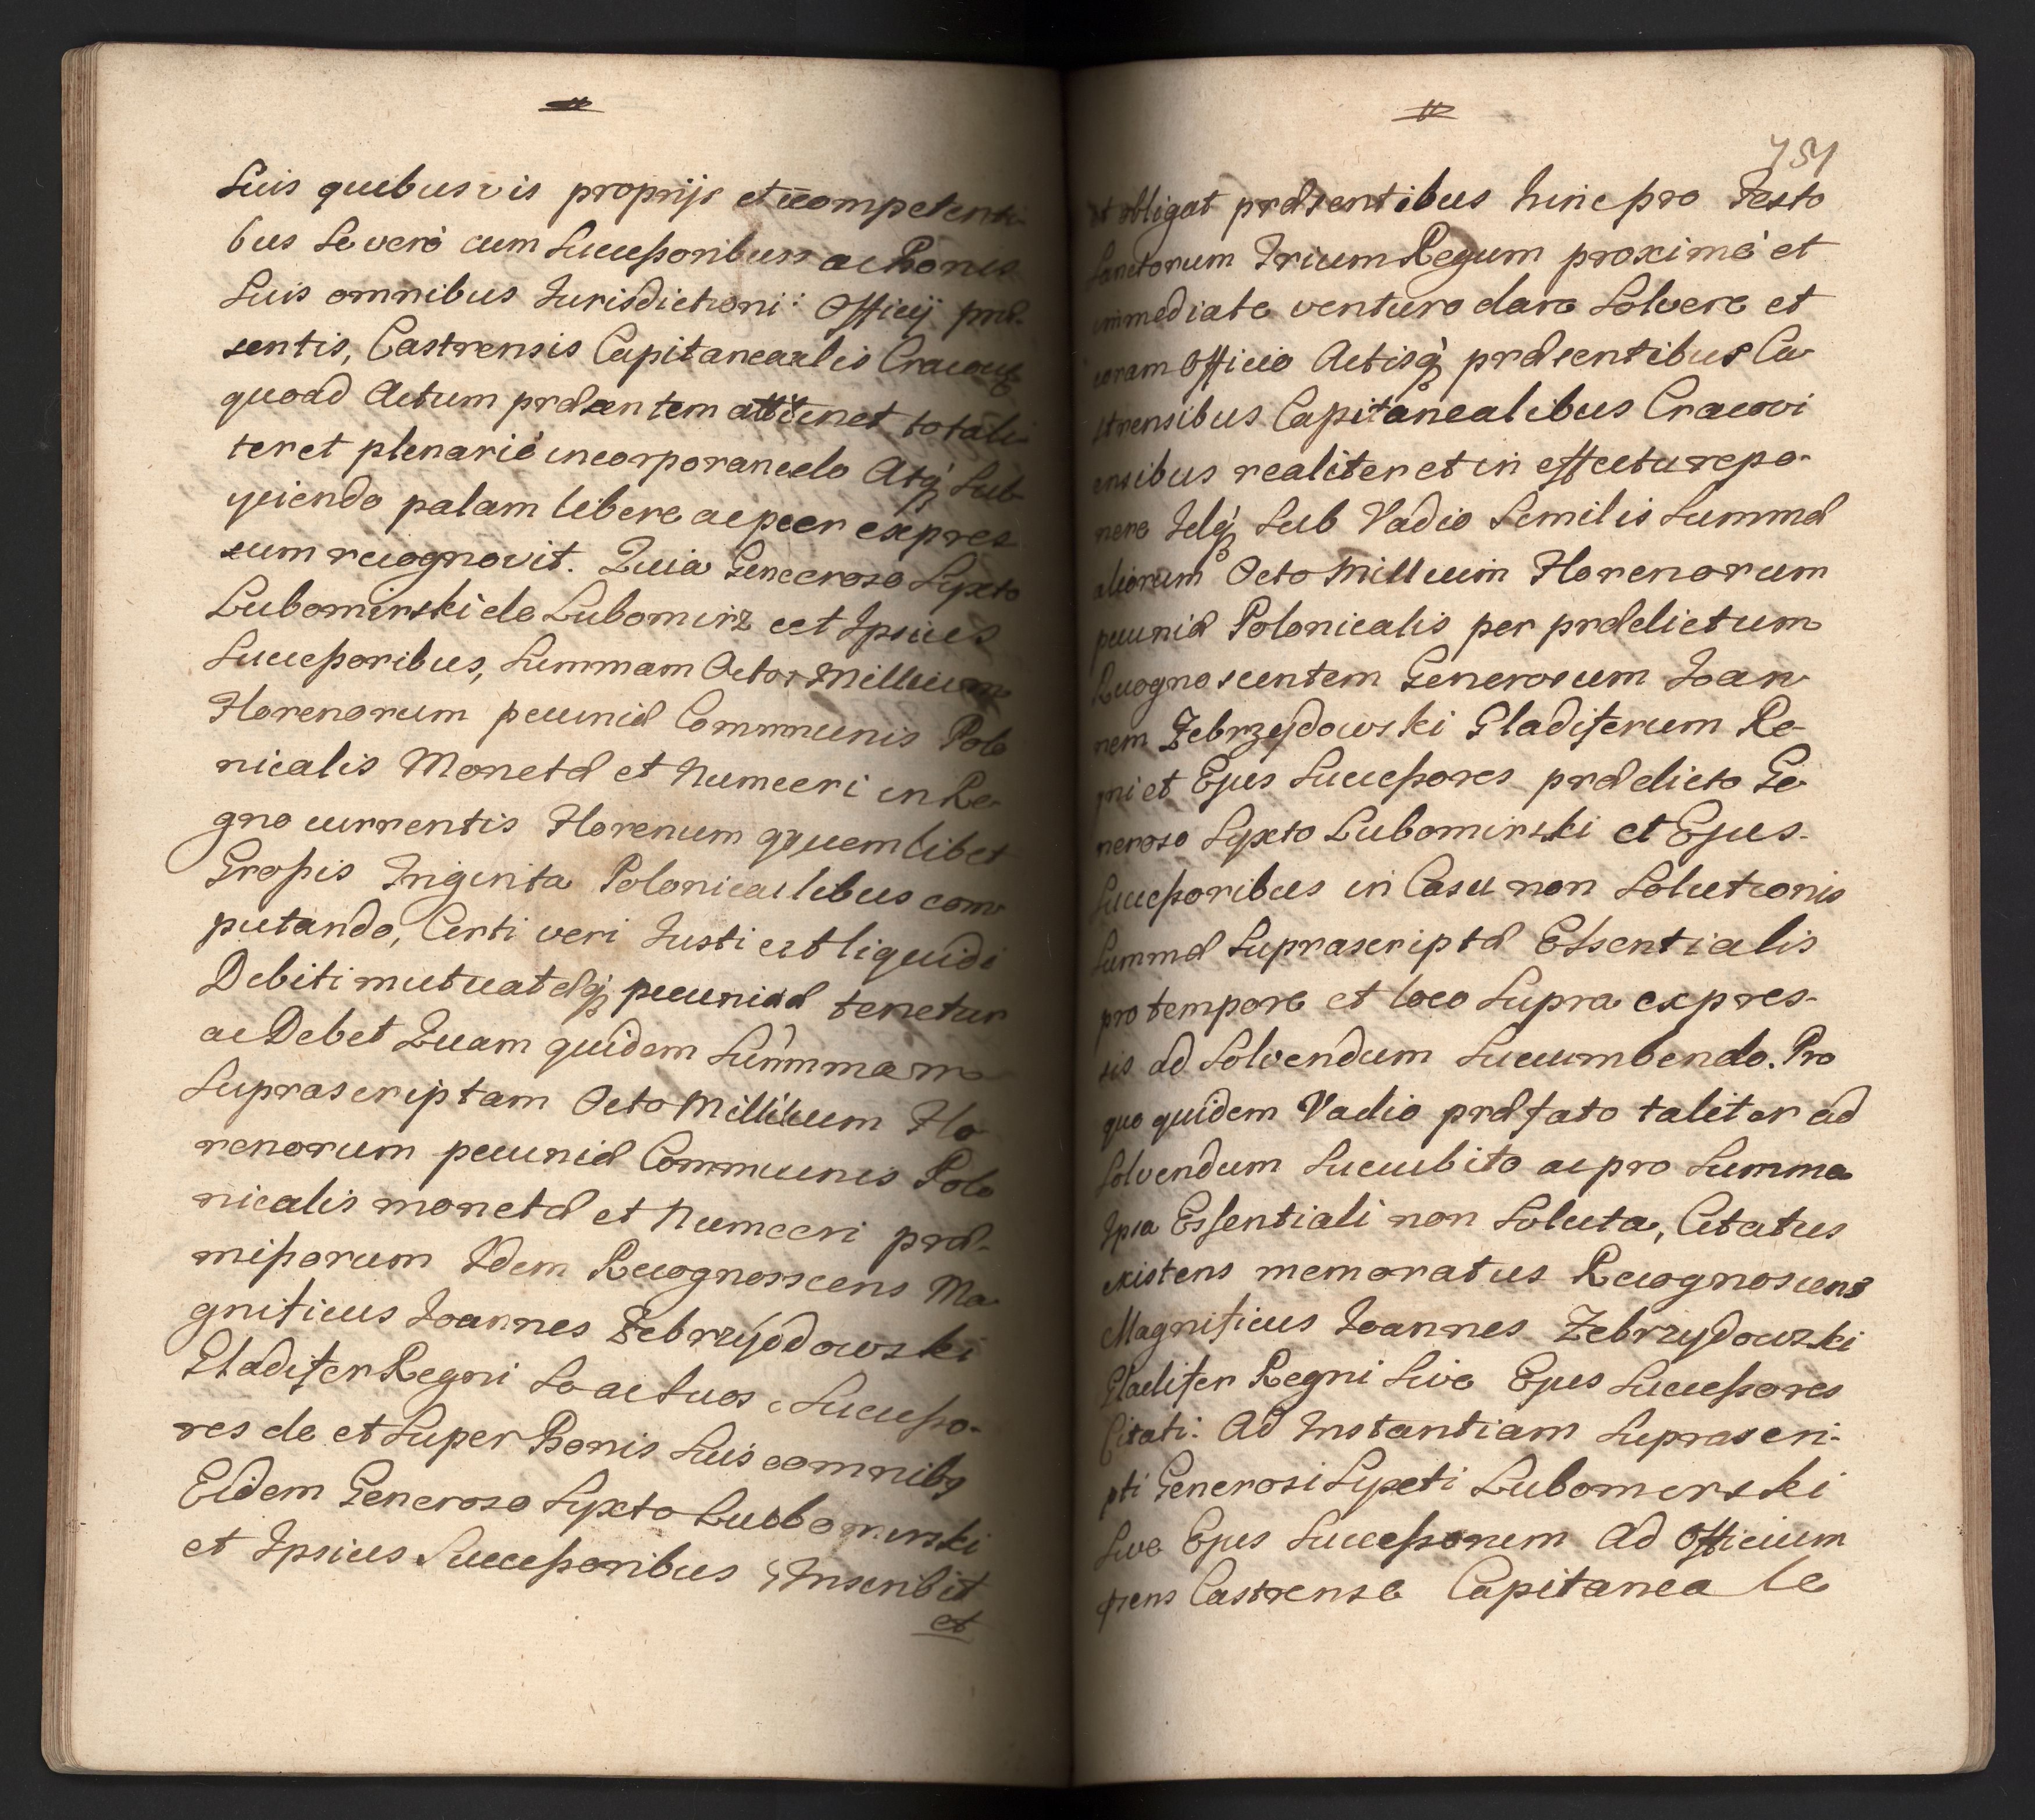 Suis quibusvis proprijs et competenti-
bus se verò cum Successoribus ac Bonis
Suis omnibus Jurisdictioni Officij præ-
sentis, Castrensis Capitanealis Cracov
quoad Actum præsentem attinet totali-
ter et plenariè incorporando Atq́ Sub-
yiciendo palam libere ac per expres
sum recognovit. Quia Generoso Syxto
Lubomirski de Lubomirz et Ipsius
Successoribus, Summam Octo Millium
Florenorum pecuniæ Communis Polo
nicalis Monetæ et Numeri in Re-
gno currentis Florenum quemlibet
Grossis Triginta Polonicalibus com-
putando, Certi veri Justi et liquidi
Debiti mutuatæq́ pecuniæ tenetur
ac Debet Quam quidem Summam
Suprascriptam Octo Millium Flo
renorum pecuniæ Communis Polo
nicalis monetæ et Numeri præ-
missorum Idem Recognoscens Ma-
gnificus Joannes Zebrzydowski
Gladifer Regni Se ac Suos Successo-
res de et Super Bonis Suis omnibq
Eidem Generoso Syxto Lubomirski
et Ipsius Successoribus Inscribit
et
751
et obligat præsentibus hinc pro Festo
Sanctorum Trium Regum proximè et
immediate venturo dare Solvere et
coram Officio Actisq́ præsentibus Ca-
strensibus Capitanealibus Cracovi
ensibus realiter et in effectu repo-
nere Idq́ Sub Vadio Similis Summæ
aliorum Octo Millium Florenorum
pecuniæ Polonicalis per prædictum
Recognoscentem Generosum Joan-
nem Zebrzydowski Gladiferum Re-
gni et Ejus Successores prædicto Ge-
neroso Syxto Lubomirski et Ejus-
Successoribus in Casu non Solutionis
Summæ Suprascriptæ Essentialis
pro tempore et loco Supra expres-
sis ad Solvendum Succumbendo. Pro
quo quidem Vadio præfato taliter ad
Solvendum Succubito ac pro Summa
Ipsa Essentiali non Soluta, Citatus
existens memoratus Recognoscens
Magnificus Joannes Zebrzydowski
Gladifer Regni Sive Ejus Successores
Citati: Ad Instantiam Suprascri-
pti Generosi Syxti Lubomirski
Sive Ejus Successorum Ad Officium
præens Castrense Capitaneale